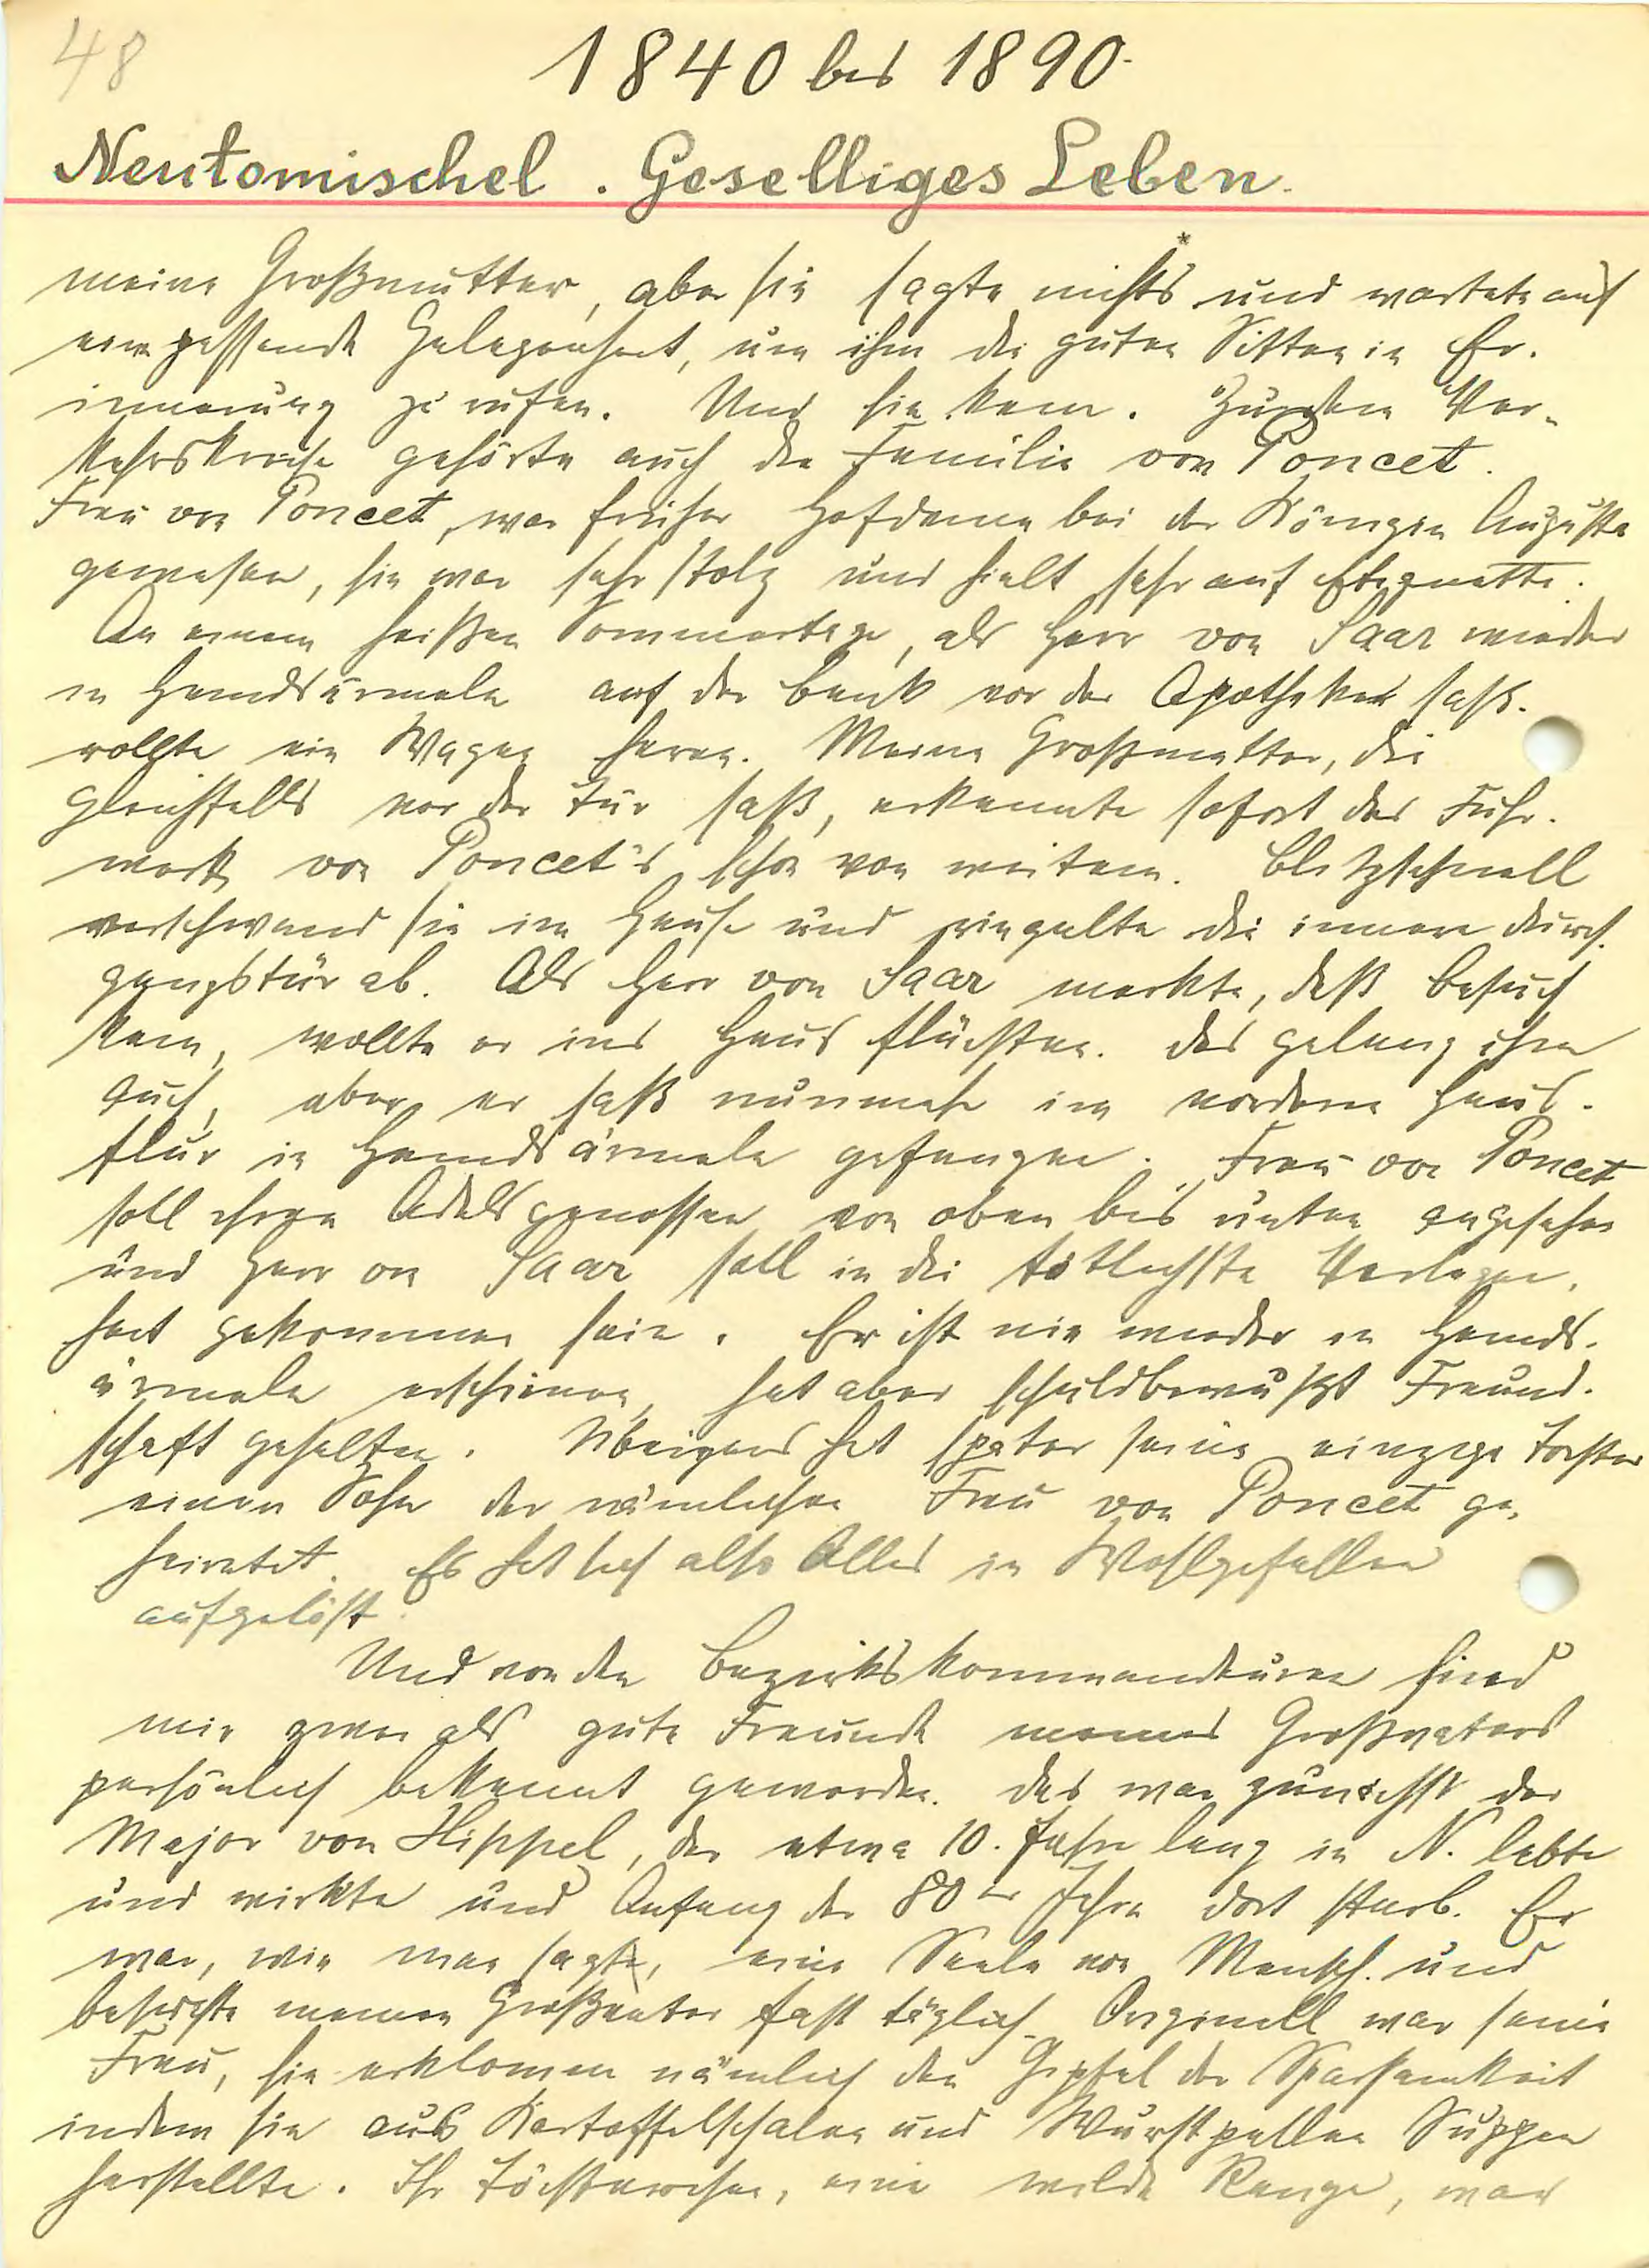 48
1840 bis 1890.
Neutomischel. Geselliges Leben.
meine Großmutter, aber sie sagte nichts* und wartete auf
eine passende Gelegenheit, um ihm die guten Sitten in Er-
innerung zu rufen. Und sie kam. Zu dem Ver-
kehrskreise gehörte auch die Familie von Poncet.
Frau von Poncet, war früher Hofdame bei der Königin Augusta
gewesen, sie war sehr stolz und hielt sehr auf Etiquette.
An einem heißen Sommertage, als Herr von Saar wieder
in Hemdsärmeln auf der Bank vor der Apotheke saß.
rollte ein Wagen heran. Meine Großmutter, die
gleichfalls vor der Tür saß, erkannte sofort das Fuhr-
werk von Poncet's schon von weitem. Blitzschnell
verschwand sie im Hause und riegelte die innere Durch-
gangstür ab. Als Herr von Saar merkte, daß Besuch
kam, wollte er ins Haus flüchten. Das gelang ihm
auch, aber er saß nunmehr im vorderen Haus-
flur in Hemdsärmeln gefangen. Frau von Poncet
soll ihren Adelsgenossen von oben bis unten angesehen
und Herr von Saar soll in die tötlichste Verlegen-
heit gekommen sein. Er ist nie wieder in Hemds-
ärmeln erschienen, hat aber schuldbewußt Freund-
schaft gehalten. Übrigens hat später seine einzige Tochter
einen Sohn der nämlichen Frau von Poncet ge-
heiratet. Es hat sich also Alles in Wohlgefallen
aufgelöst.
Und von den Bezirkskommandeuren sind
mir zwei als gute Freunde meines Großvaters
persönlich bekannt geworden. Das war zunächst der
Major von Hippel, der etwa 10. Jahre lang in N. lebte
und wirkte und Anfang der 80er Jahre dort starb. Er
war, wie man sagt, eine Seele von Mensch. und
besuchte meinen Großvater fast täglich. Originell war seine
Frau, sie erklomm nämlich den Gipfel der Sparsamkeit
indem sie aus Kartoffelschalen und Wurstpellen Suppen
herstellte. Ihr Töchterchen, eine wilde Range, war